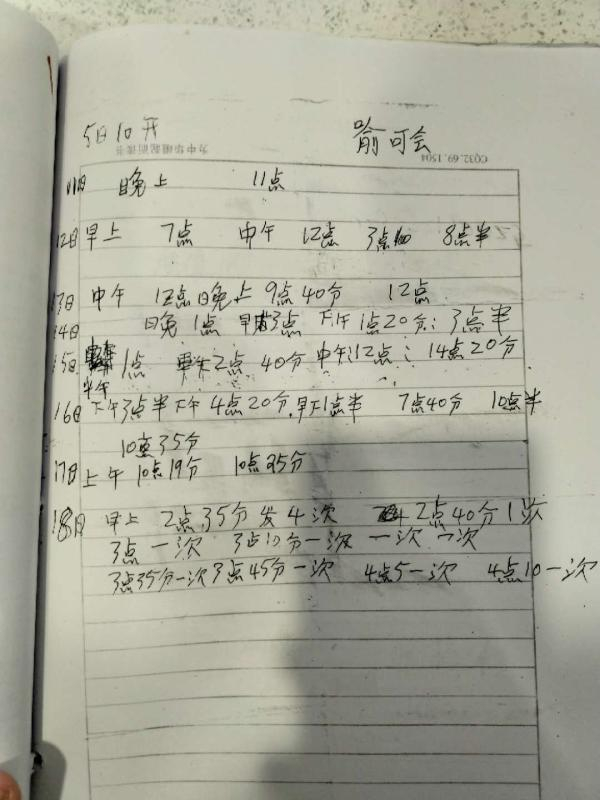 5日10开 喻可会
为中华崛起而读书 CQ32.69.1504
11日 晚上 11点
12日 早上 7点 中午 12点 3点 8点半
13日 中午 12点 晚上 9点40分 12点
14日 日晚 1点 早 3点 下午 1点20分: 3点半
15日 1点 2点 40分 中午:12点: 14点20分
半午
16日 下午3点半 下午 4点20分. 早下1点半 7点40分 10点半
10点35分
17日 上午 10点19分 10点25分
18日 早上 2点35分发4次 2点40分1次
3点一次 3点10分一次 一次 一次
3点35分一次 3点45分一次 4点5一次 4点10一次